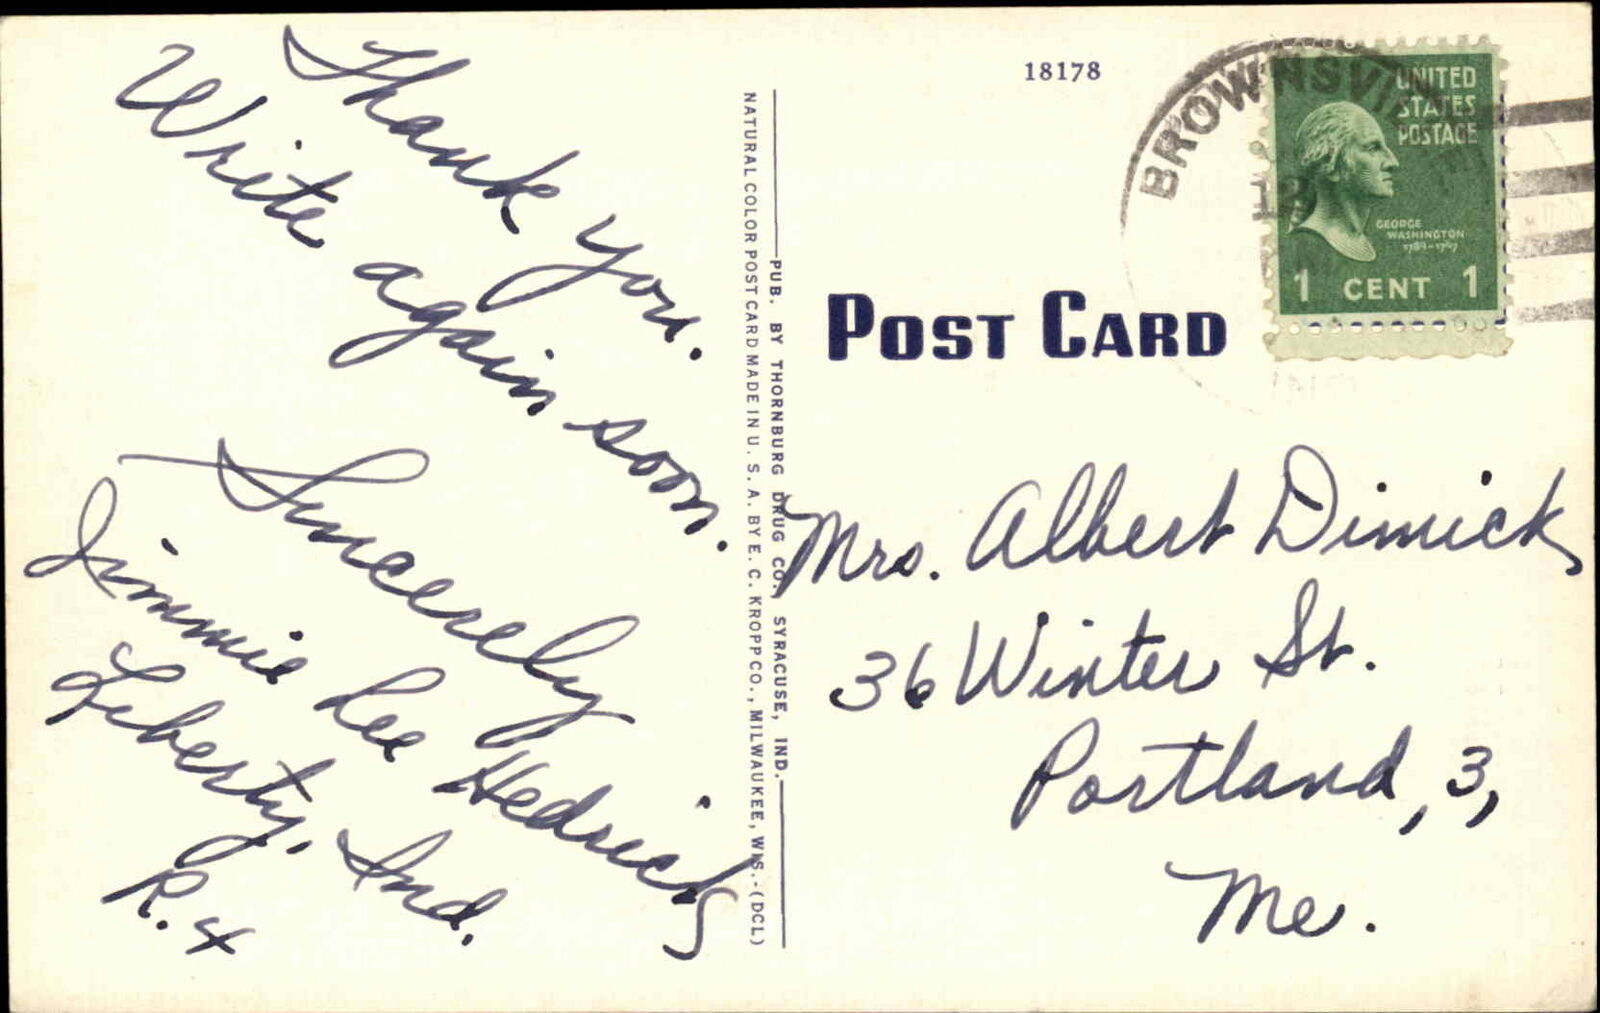 Thank you.
Write again soon.
Sincerely
Jimmie Lee Hedrick
Liberty, Ind.
R. 4
NATURAL COLOR POST CARD MADE IN U. S. A. BY E. C. KROPP CO., MILWAUKEE, WIS.-(DCL)
PUB. BY THORNBURG DRUG CO., SYRACUSE, IND.
18178
BROWNSVI
UNITED
STATES
POSTAGE
GEORGE
WASHINGTON
1789-1797
1 CENT 1
POST CARD
Mrs. Albert Dimick
36 Winter St.
Portland, 3,
Me.